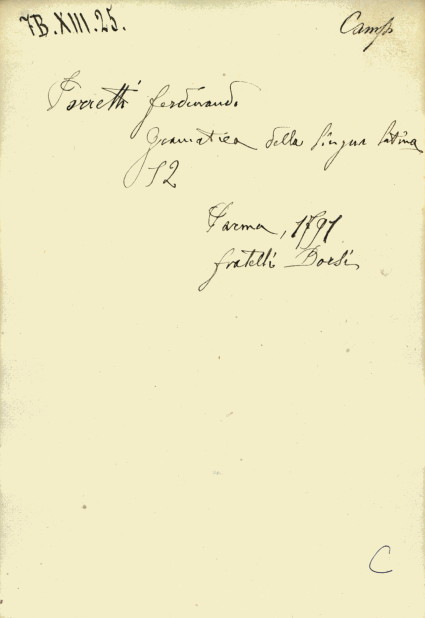 7B.XIII.25.
Camp
Porretti Ferdinando
Gramatica della lingua latina
12
Parma, 1791
fratelli Borsi
C